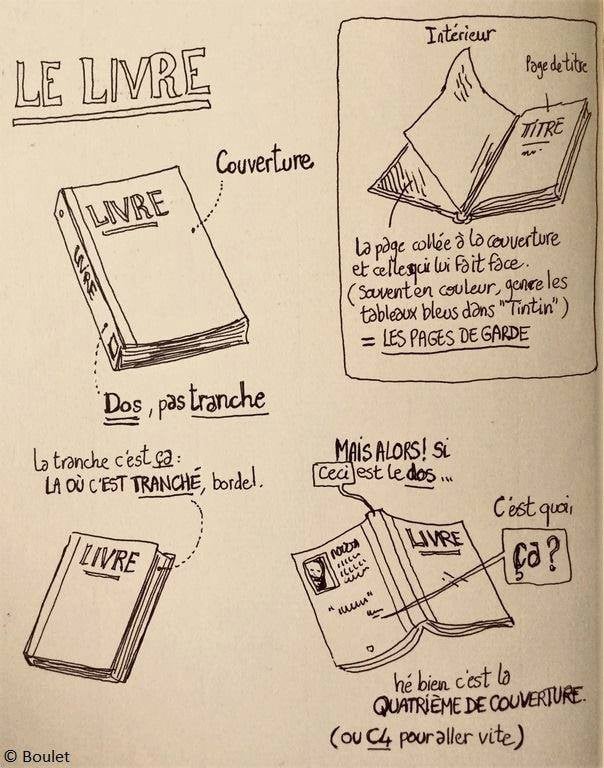 LE LIVRE
Couverture
LIVRE
LIVRE
Dos, pas tranche
Intérieur
Page de titre
TITRE
La page collée à la couverture
et celle qui lui fait face.
(Souvent en couleur, genre les
tableaux bleus dans "Tintin")
= LES PAGES DE GARDE
la tranche c'est ça :
LA OÙ C'EST TRANCHÉ, bordel.
LIVRE
MAIS ALORS! Si
Ceci est le dos...
C'est quoi,
ça ?
LIVRE
hé bien c'est la
QUATRIÈME DE COUVERTURE.
(ou C4 pour aller vite)
© Boulet